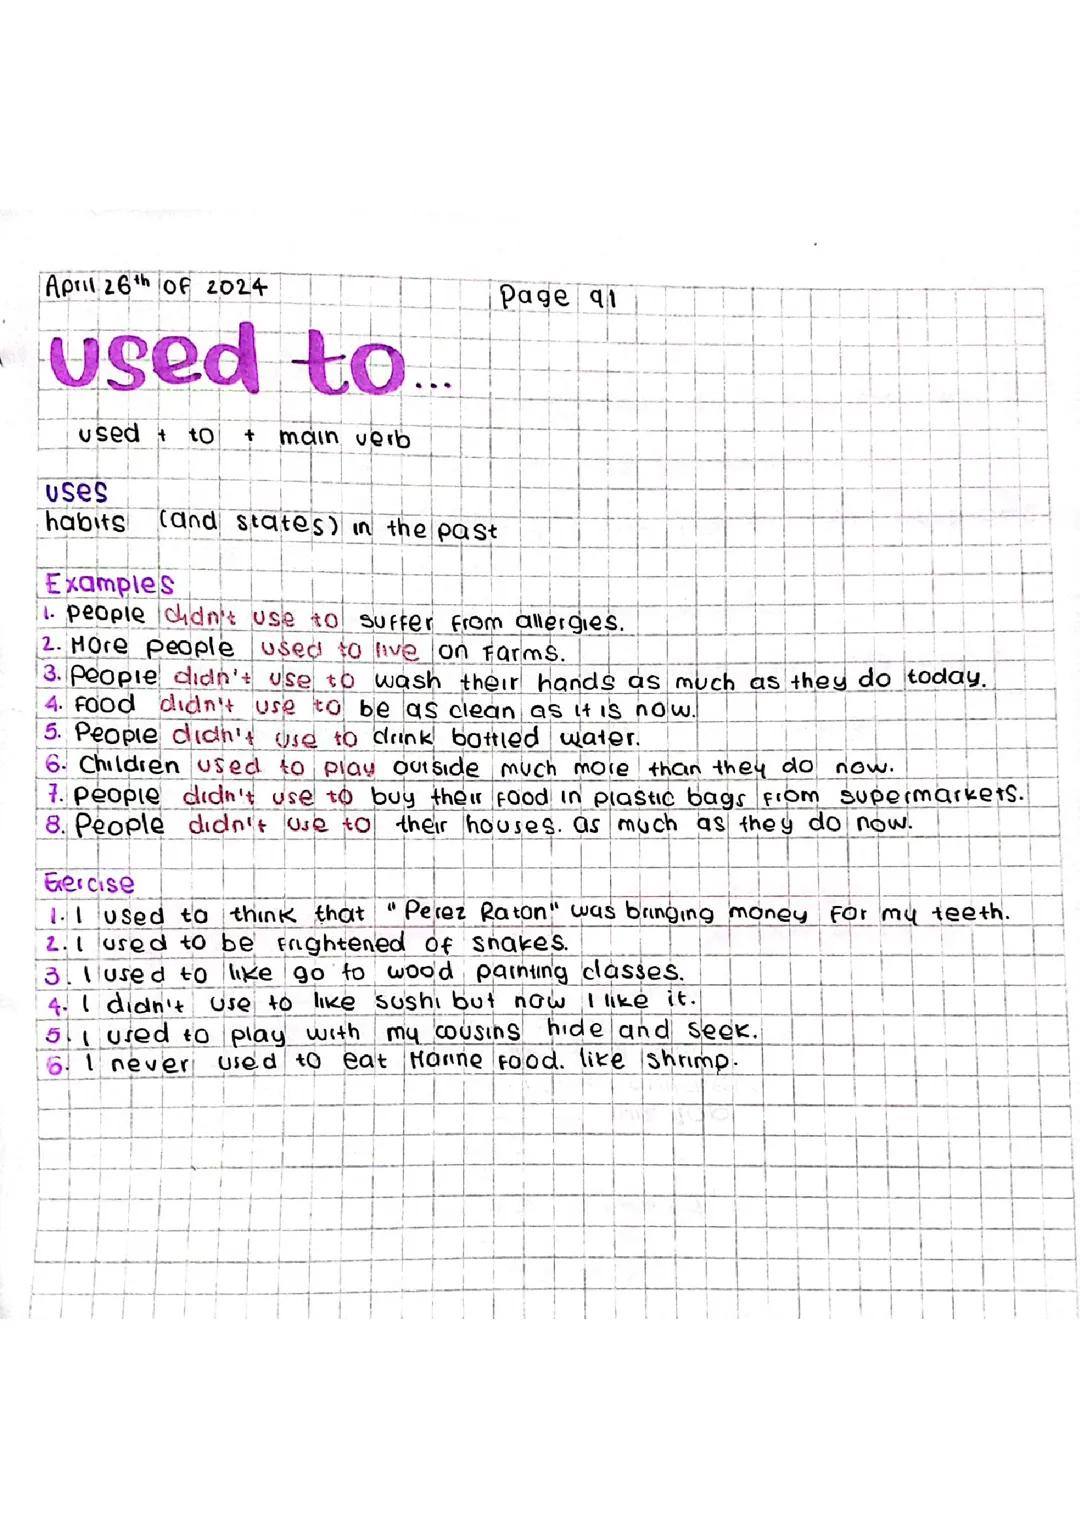 April 26th of 2024
Page 91
used to...
used + to + main verb
uses
habits (and states) in the past
Examples
1. people didn't use to suffer from allergies.
2. More people used to live on farms.
3. People didn't use to wash their hands as much as they do today.
4. Food didn't use to be as clean as it is now.
5. People didn't use to drink bottled water.
6. Children used to play outside much more than they do now.
7. People didn't use to buy their food in plastic bags from supermarkets.
8. People didn't use to their houses. as much as they do now.
Exercise
1. I used to think that "Perez Raton" was bringing money for my teeth.
2. I used to be frightened of snakes.
3. I used to like go to wood painting classes.
4. I didn't use to like sushi but now I like it.
5. I used to play with my cousins hide and seek.
6. I never used to eat Marine food. like shrimp.